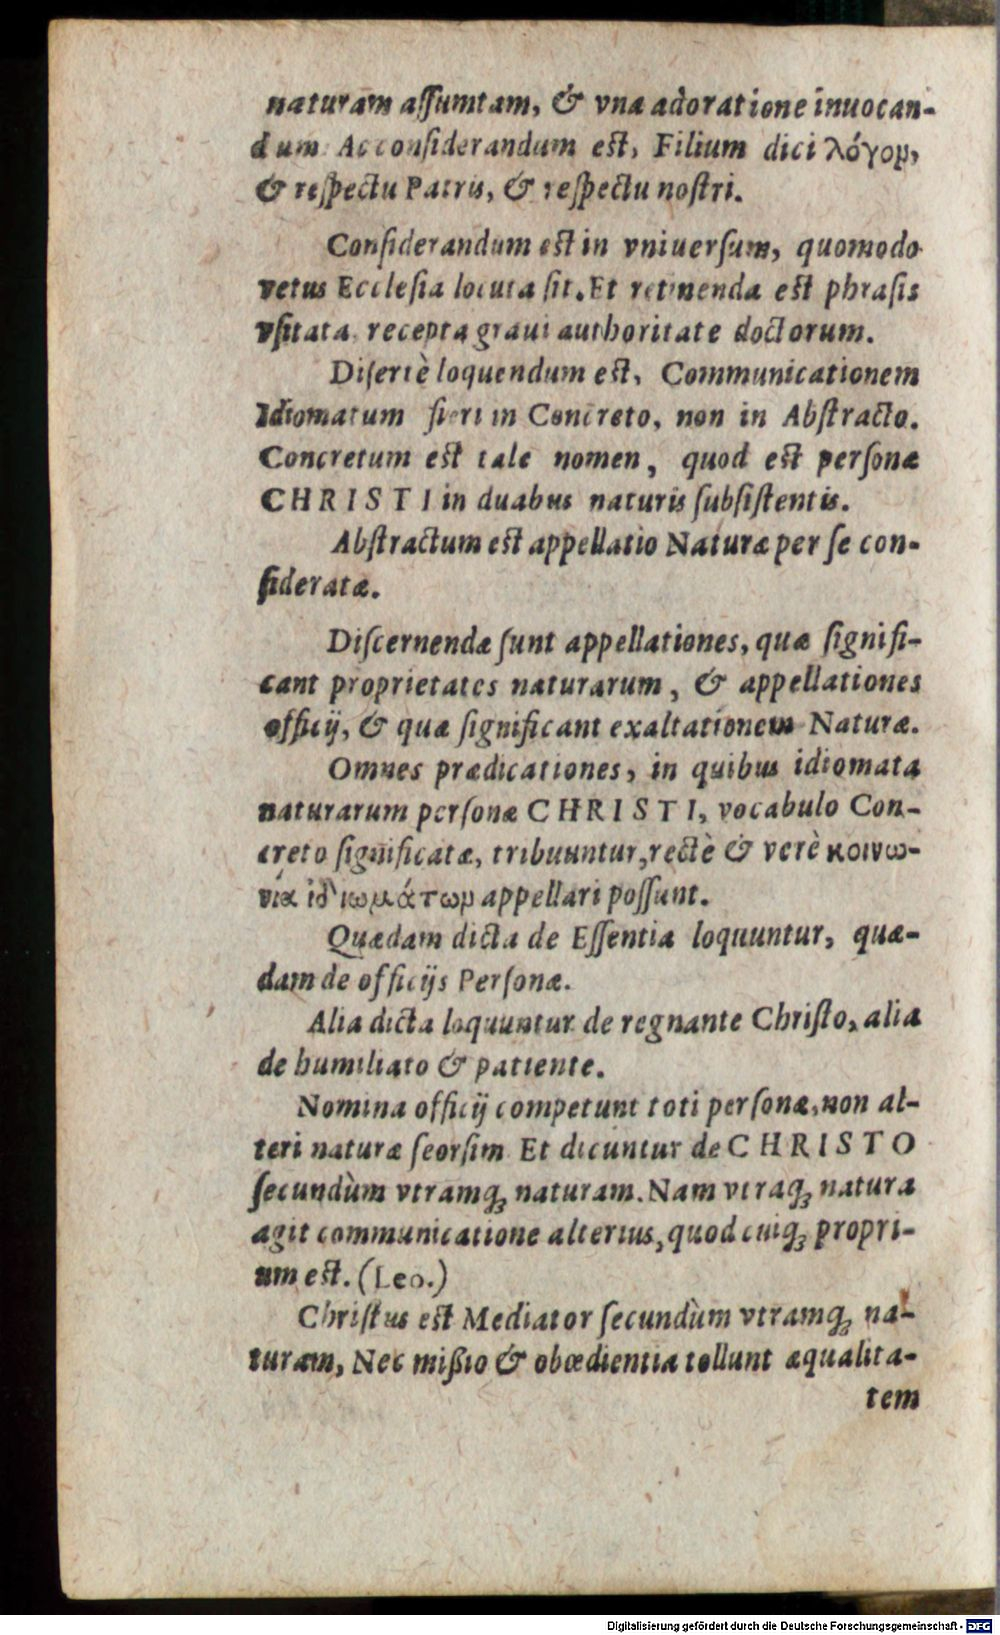 naturam aſſumtam, & vna adoratione inuocan-
dum Ac conſiderandum eſt, Filium dici λόγομ,
& reſpectu Patris, & reſpectu noſtri.
Conſiderandum eſt in vniuerſum, quomodo
vetus Eccleſia locuta ſit. Et retinenda eſt phraſis
vſitata recepta graui authoritate doctorum.
Diſertè loquendum eſt, Communicationem
Idiomatum fieri in Concreto, non in Abſtracto.
Concretum eſt tale nomen, quod eſt perſonæ
CHRISTI in duabus naturis ſubſiſtentis.
Abſtractum eſt appellatio Naturæ per ſe con-
ſideratæ.
Diſcernendæ ſunt appellationes, quæ ſignifi-
cant proprietates naturarum, & appellationes
officij, & quæ ſignificant exaltationem Naturæ.
Omnes prædicationes, in quibus idiomata
naturarum perſonæ CHRISTI, vocabulo Con-
creto ſignificatæ, tribuuntur, rectè & verè κοινω-
νία ἰδιωμάτωμ appellari poſſunt.
Quædam dicta de Eſſentia loquuntur, quæ-
dam de officijs Perſonæ.
Alia dicta loquuntur de regnante Chriſto, alia
de humiliato & patiente.
Nomina officij competunt toti perſonæ, non al-
teri naturæ ſeorſim Et dicuntur de CHRISTO
ſecundùm vtramq́; naturam. Nam vtraq́; natura
agit communicatione alterius, quod cuiq́; propri-
um eſt. (Leo.)
Chriſtus eſt Mediator ſecundùm vtramq́; na-
turam, Nec mißio & obœdientia tollunt æqualita-
tem
Digitalisierung gefördert durch die Deutsche Forschungsgemeinschaft - DFG